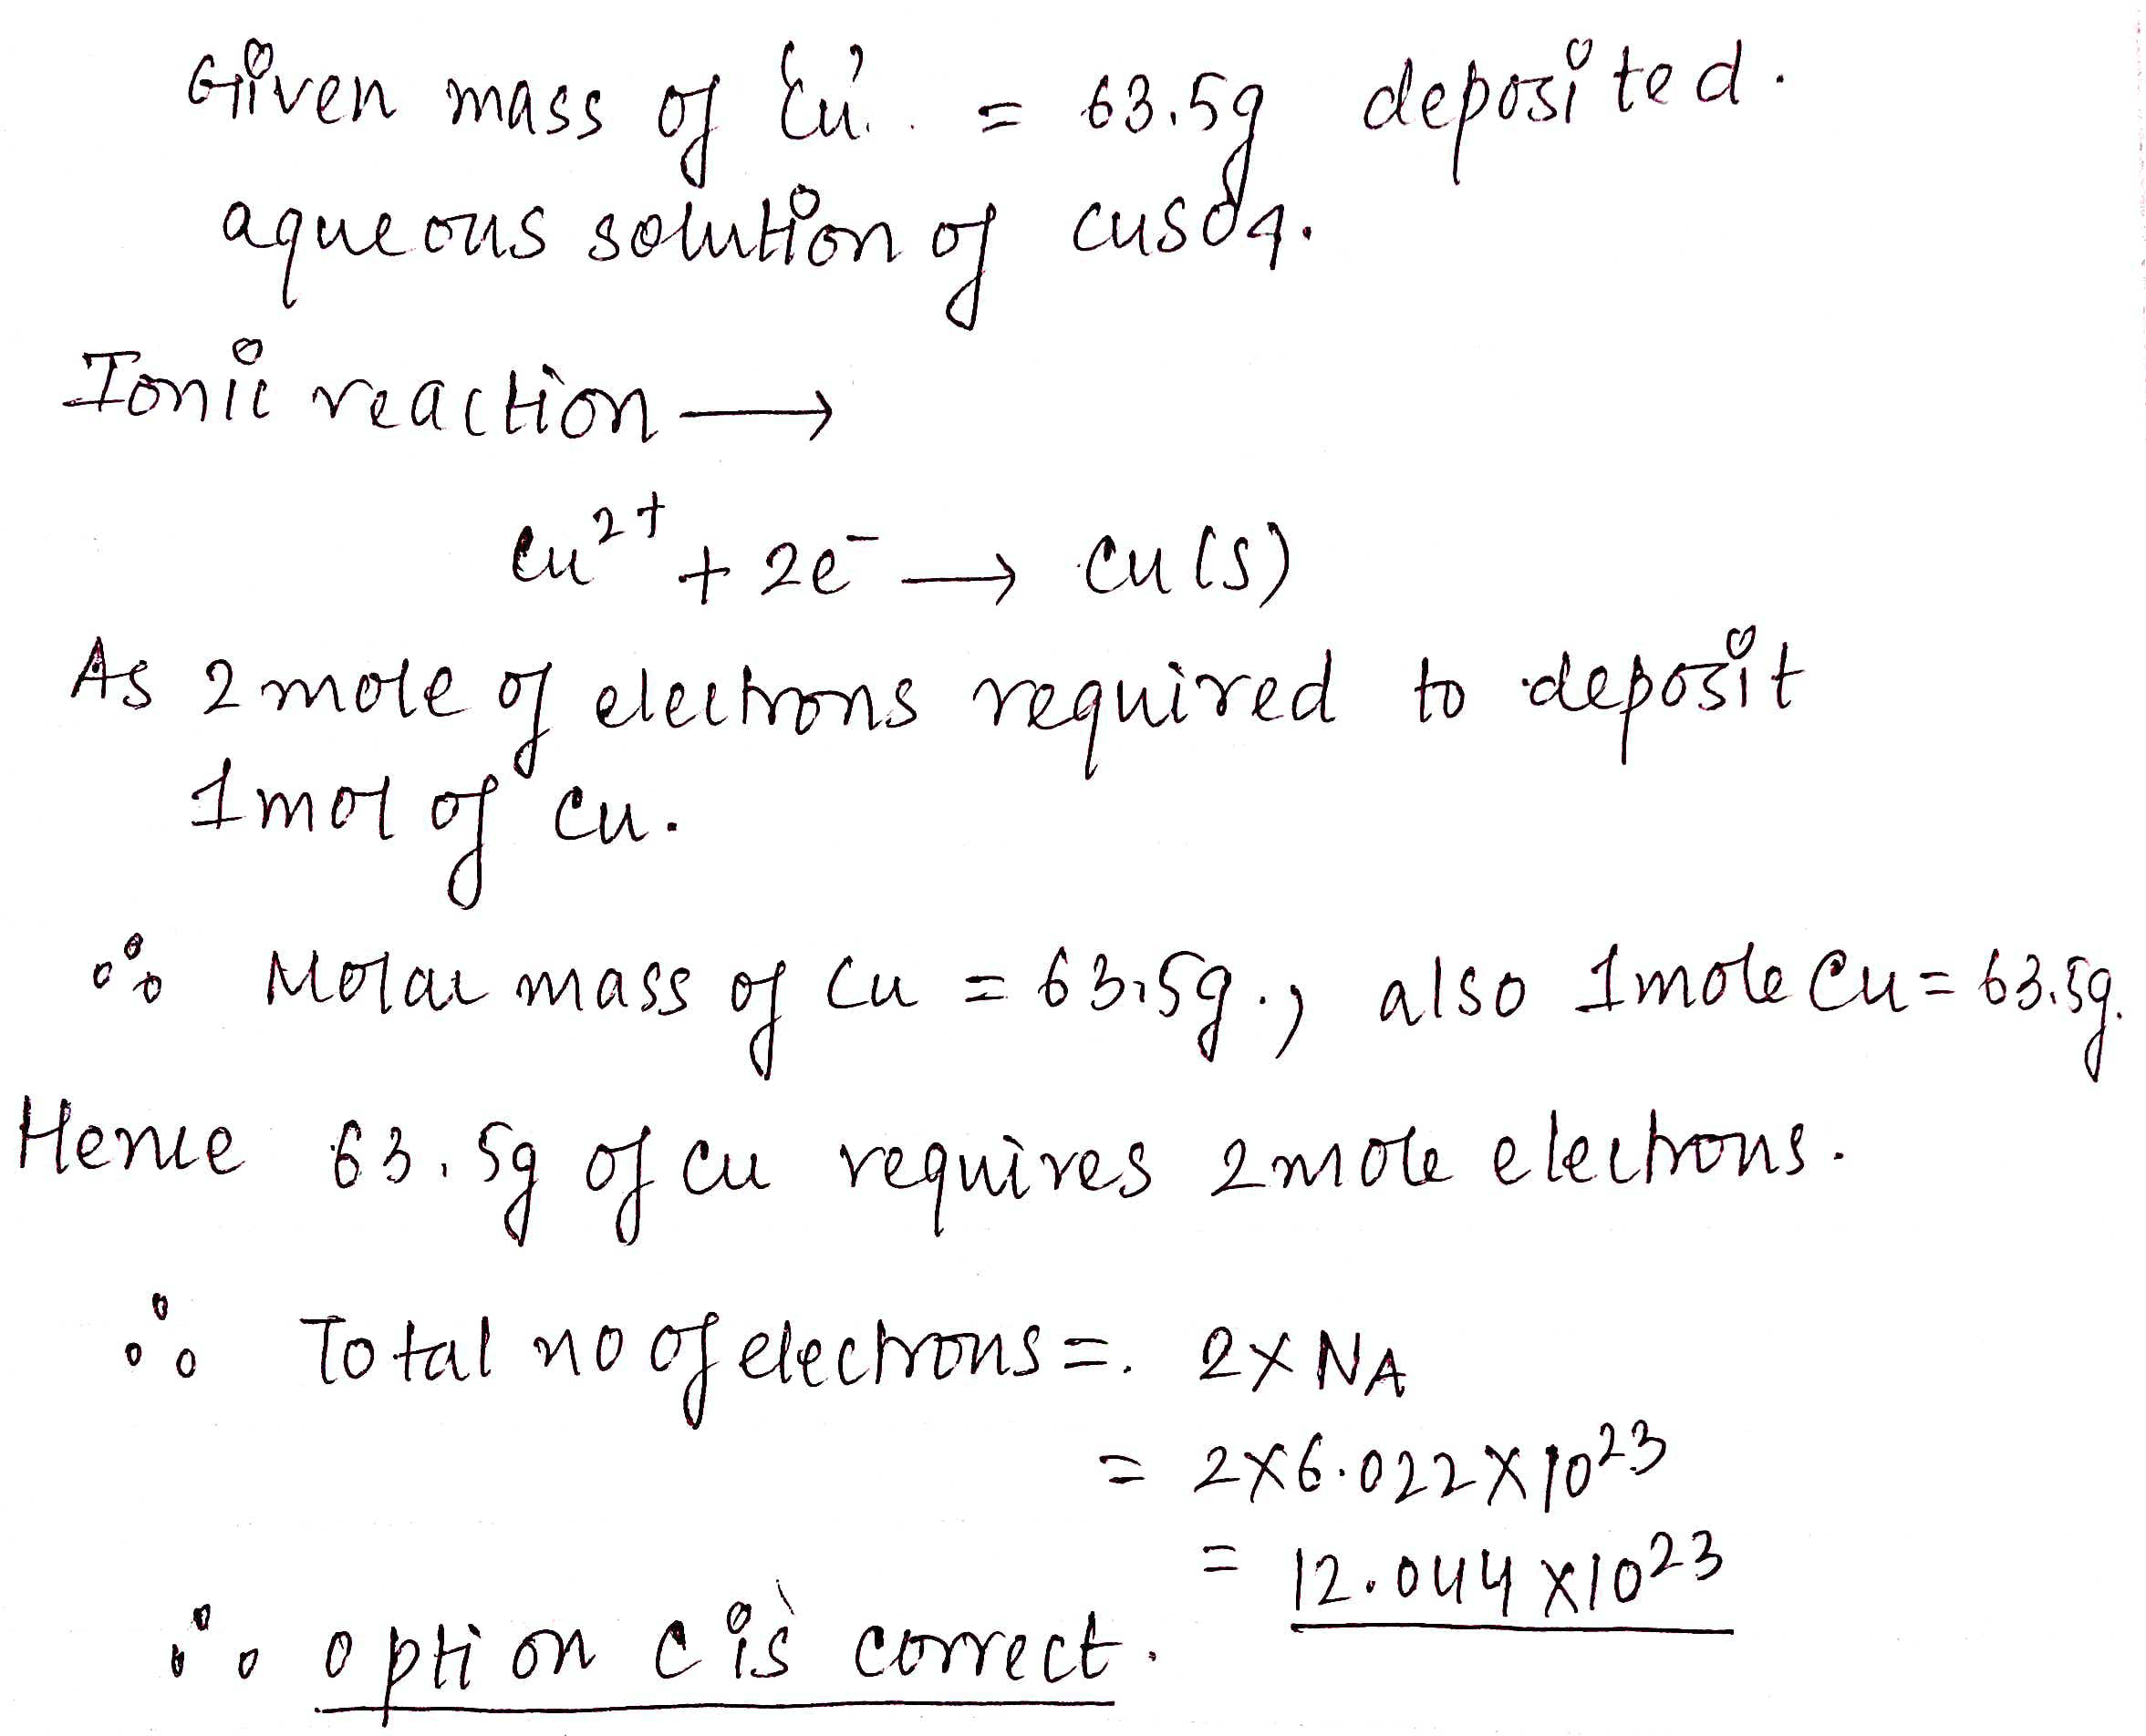 Given mass of 'Cu'. = 63.5g deposited.
aqueous solution of CuSO4.
Ionic reaction →
Cu²⁺ + 2e⁻ → Cu(s)
As 2 mole of electrons required to deposit
1 mol of Cu.
∴ Molar mass of Cu = 63.5g., also 1mole Cu = 63.5g.
Hence 63.5g of Cu requires 2mole electrons.
∴ Total no of electrons =. 2×NA
= 2×6.022×10²³
= 12.044×10²³
∴ option C is correct.